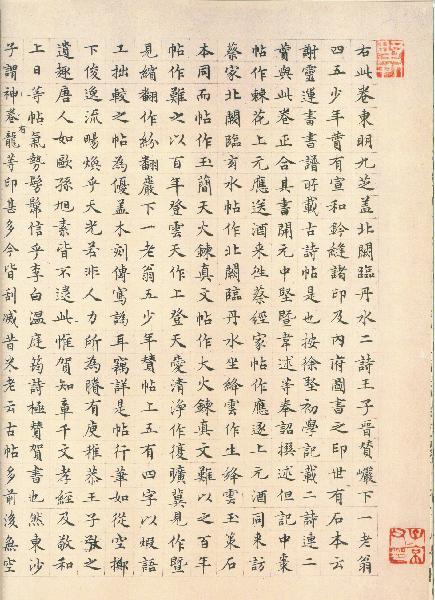 右此卷東明九芝盖北闕臨丹水二詩王子晉贊巖下一老翁
四五少年贊有宣和鈐縫諸印及内府圖書之印世有石本云
謝靈運書書譜所載古詩帖是也按徐堅初學記載二詩連二
贊與此卷正合其書開元中堅暨韋述等奉詔撰述但記中棗
帖作棘花上元應送酒来從蔡經家帖作應逐上元酒同来訪
蔡家北闕臨玄水帖作北闕臨丹水坐絳雲作生絳雲玉策石
本同而帖作玉簡天火鍊真文帖作大火鍊真文難以之百年
帖作難之以百年登雲天作上登天愛清淨作復曠冀見作暨
見繒翻作紛翻巖下一老翁五少年贊帖上五有四字以蝦語
工拙較之帖為優盖木刻傳寫訛耳竊詳是帖行筆如從空擲
下俊逸流暢煥乎天光若非人力所為隋有庾推恭王子敬之
遺趣唐人如歐孫旭素皆不逮此惟賀知章千文孝經及敬和
上日等帖氣勢髣髴信乎李白温庭筠詩極贊賀書也然東沙
子謂神卷有龍等印甚多今皆刮滅昔米老云古帖多前後無空